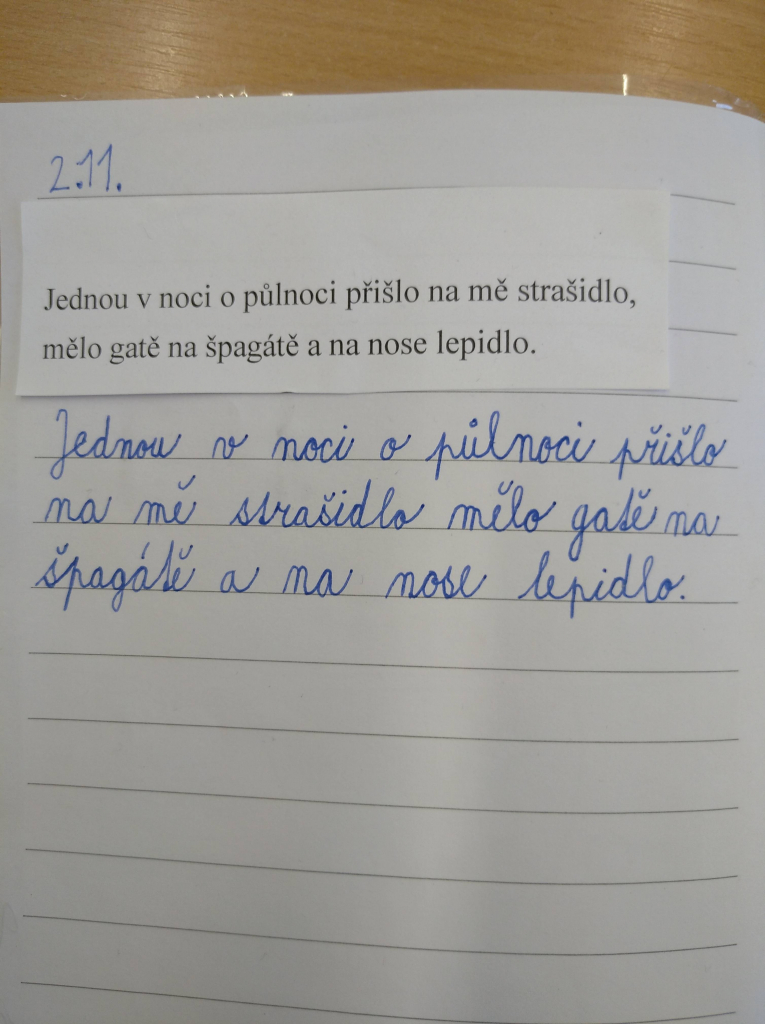 2.11.
Jednou v noci o půlnoci přišlo na mě strašidlo,
mělo gatě na špagátě a na nose lepidlo.
Jednou v noci o půlnoci přišlo
na mě strašidlo mělo gatě na
špagátě a na nose lepidlo.